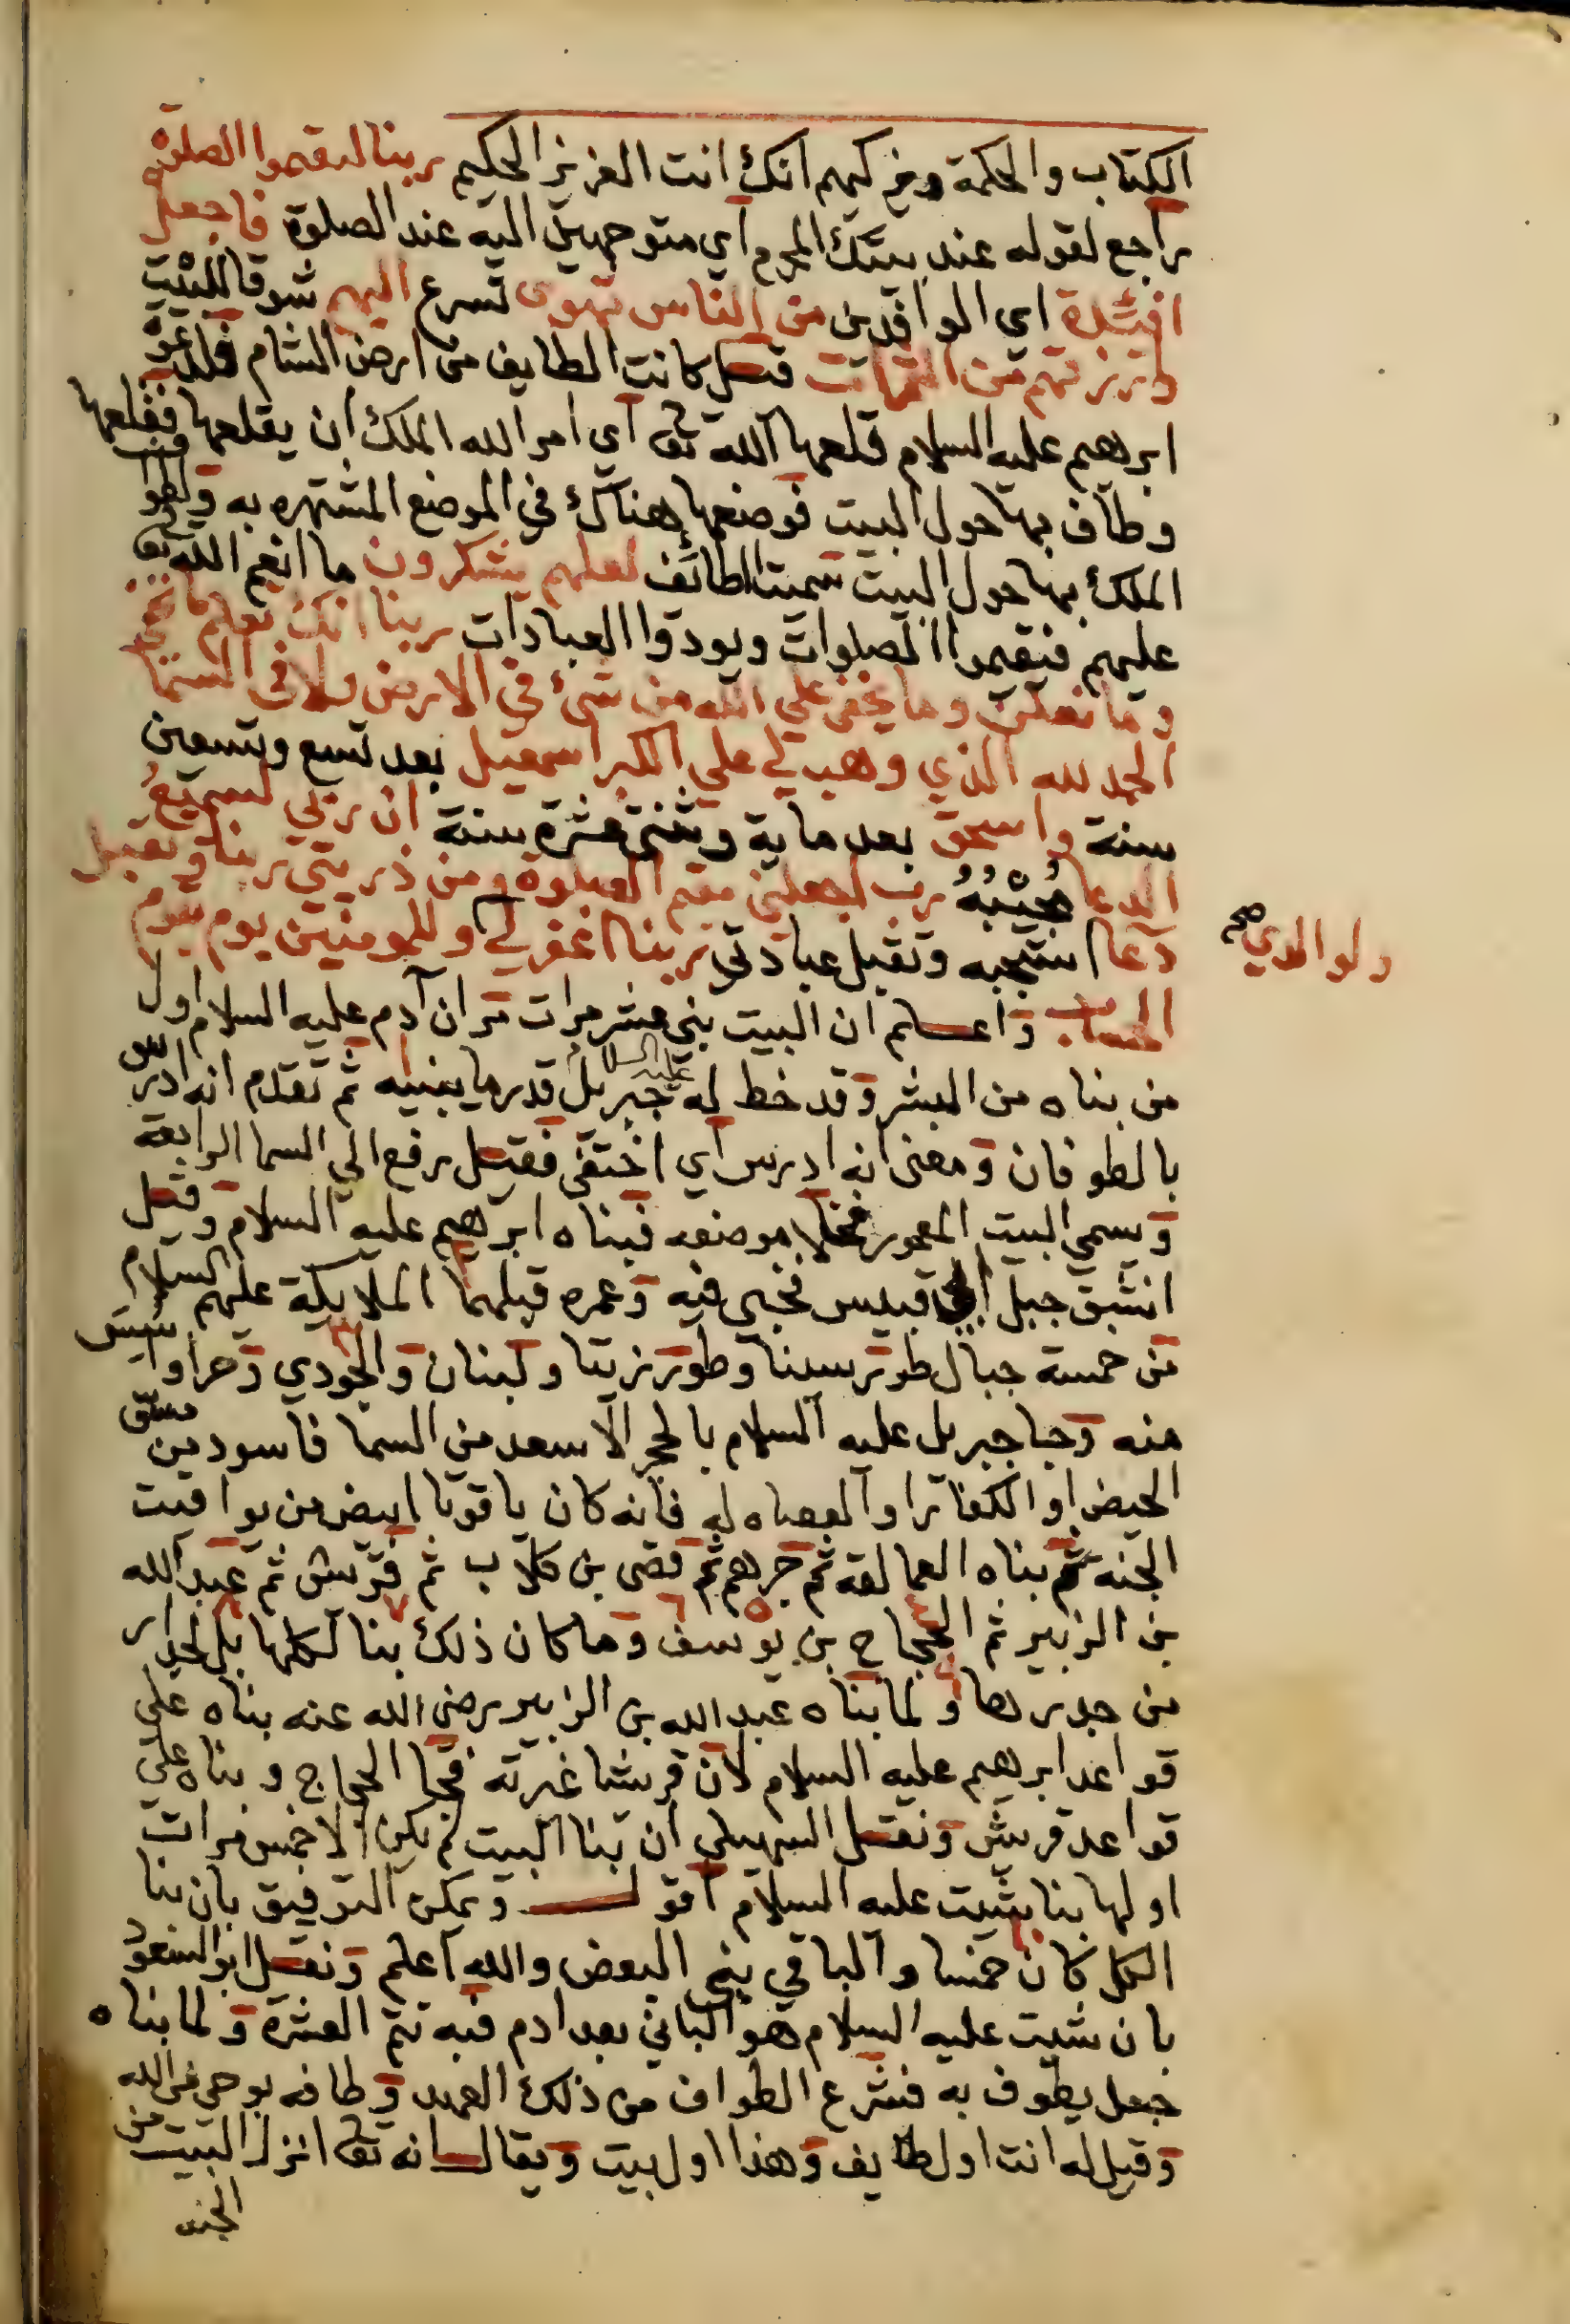 الكتاب والحكمة ويزكيهم انك انت العزيز الحكيم ربنا ليقيموا الصلوة
راجع لقوله عند بيتك المحرم اي متوجهين اليه عند الصلوة فاجعل
افئدة اي الوافدين من الناس تهوى تسرع اليهم شوقا للبيت
وارزقهم من الثمرات قيل كانت الطايف من ارض الشام فلدعوة
ابرهيم عليه السلام قلعها الله تعالى اي امر الله الملك ان يقلعها فقلعها
وطاف بها حول البيت فوضعها هناك في الموضع المشتهره به ولطواف
الملك بها حول البيت سميت الطائف لعلهم يشكرون ما انعم الله تعالى
عليهم فيقيموا الصلوات ويودوا العبادات ربنا انك تعلم ما نخفي
وما نعلن وما يخفى علي الله من شيء في الارض ولا في السما
الحمد لله الذي وهب لي على الكبر اسمعيل بعد تسع وتسعين
سنة واسحق بعد ماية وثنتي عشرة سنة ان ربي لسميع
الدعا مجيبه رب اجعلني مقيم الصلوة ومن ذريتي ربنا وتقبل
دعا استجبه وتقبل عبادتي ربنا اغفر لي وللمومنين يوم يقوم
ولوالدي صح
الحساب واعلم ان البيت بني عشر مرات مر ان آدم عليه السلام اول
من بناه من البشر وقد خط له جبريل عليه السلام قدر ما يبنيه ثم تقدم انه ادرس
بالطوفان ومعنى انه ادرس اي اختفى فقيل رفع الي السما الرابعة
ويسمي البيت المعمور فخلا موضعه فبناه ابرهيم عليه السلام وقيل
انشق جبل ابي قبيس فخبي فيه وعمره قبلهما الملايكة عليهم السلام
من خمسة جبال طور سينا وطور زيتا ولبنان والجودي وحرا واسس
منه وجا جبريل عليه السلام بالحجر الاسعد من السما فاسود من مس
الحيض او الكفار او العصاه له فانه كان ياقوتا ابيض من يواقيت
الجنة ثم بناه العمالقة ثم جرهم ثم قصي بن كلاب ثم قريش ثم عبد الله
بن الزبير ثم الحجاج بن يوسف وما كان ذلك بنا لكلها بل لجدار
من جدرها ولما بناه عبد الله بن الزبير رضي الله عنه بناه على
قواعد ابرهيم عليه السلام لان قريشا غيرته فجا الحجاج وبناه علي
قواعد قريش ونقل السهيلي ان بنا البيت لم يكن الا خمس مرات
اولها بنا شيث عليه السلام اقول ويمكن التوفيق بان بنا
الكل كان خمسا والباقي بني البعض والله اعلم ونقل ابو السعود
بان شيت عليه السلام هو الباني بعد ادم فبه تتم العشرة ولما بناه
جعل يطوف به فشرع الطواف من ذلك العهد وطافه بوحي من الله
وقيل له انت اول طايف وهذا اول بيت ويقال انه تعالى انزل البيت من
الجنة